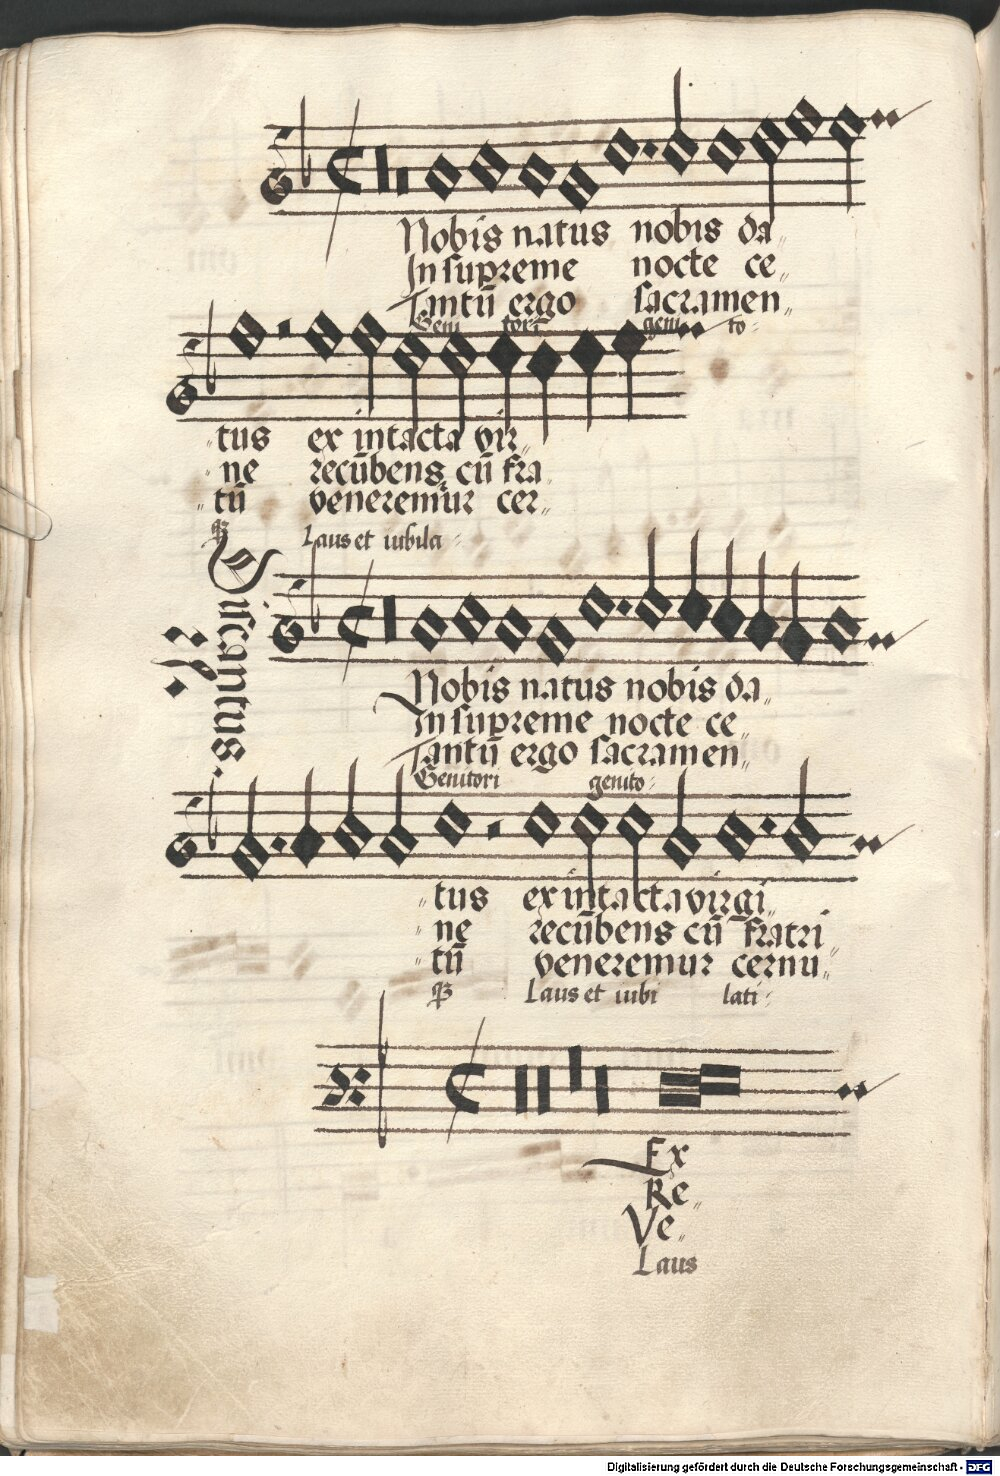 Nobis natus nobis da„
In supreme nocte ce„
Tantū ergo sacramen„
Geni tori geni to-
„tus ex intacta vir„
„ne recūbens cū fra„
„tū veneremur cer„
Laus et iubila-
Discantus.
Nobis natus nobis da„
In supreme nocte ce„
Tantū ergo sacramen„
Genitori genito-
„tus ex intacta virgi„
„ne recūbens cū fratri„
„tū veneremur cernu„
Laus et iubi lati-
Ex
Re„
Ve„
Laus
Digitalisierung gefördert durch die Deutsche Forschungsgemeinschaft - DFG